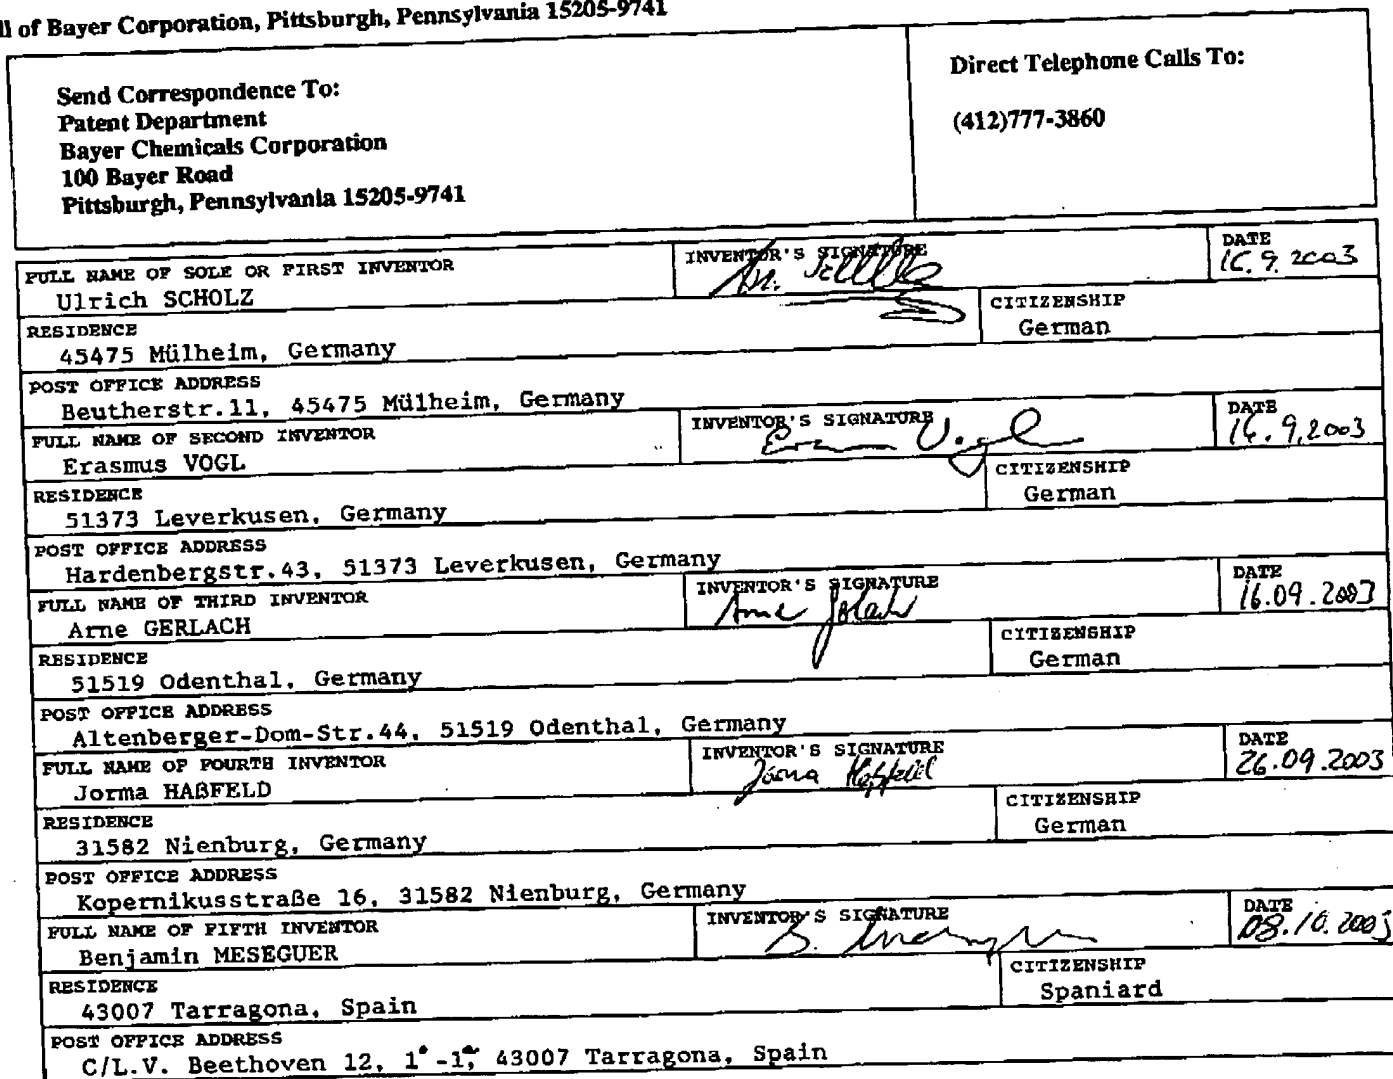 ll of Bayer Corporation, Pittsburgh, Pennsylvania 15205-9741
Send Correspondence To:
Patent Department
Bayer Chemicals Corporation
100 Bayer Road
Pittsburgh, Pennsylvania 15205-9741
Direct Telephone Calls To:
(412)777-3860
FULL NAME OF SOLE OR FIRST INVENTOR
Ulrich SCHOLZ
INVENTOR'S SIGNATURE
DATE
16. 9. 2003
RESIDENCE
45475 Mülheim, Germany
CITIZENSHIP
German
POST OFFICE ADDRESS
Beutherstr.11, 45475 Mülheim, Germany
FULL NAME OF SECOND INVENTOR
Erasmus VOGL
INVENTOR'S SIGNATURE
Erasmus Vogl
DATE
16. 9. 2003
RESIDENCE
51373 Leverkusen, Germany
CITIZENSHIP
German
POST OFFICE ADDRESS
Hardenbergstr.43, 51373 Leverkusen, Germany
FULL NAME OF THIRD INVENTOR
Arne GERLACH
INVENTOR'S SIGNATURE
Arne Gerlach
DATE
16.09.2003
RESIDENCE
51519 Odenthal, Germany
CITIZENSHIP
German
POST OFFICE ADDRESS
Altenberger-Dom-Str.44, 51519 Odenthal, Germany
FULL NAME OF FOURTH INVENTOR
Jorma HAßFELD
INVENTOR'S SIGNATURE
Jorma Haßfeld
DATE
26.09.2003
RESIDENCE
31582 Nienburg, Germany
CITIZENSHIP
German
POST OFFICE ADDRESS
Kopernikusstraße 16, 31582 Nienburg, Germany
FULL NAME OF FIFTH INVENTOR
Benjamin MESEGUER
INVENTOR'S SIGNATURE
DATE
08.10.2003
RESIDENCE
43007 Tarragona, Spain
CITIZENSHIP
Spaniard
POST OFFICE ADDRESS
C/L.V. Beethoven 12, 1°-1ª, 43007 Tarragona, Spain